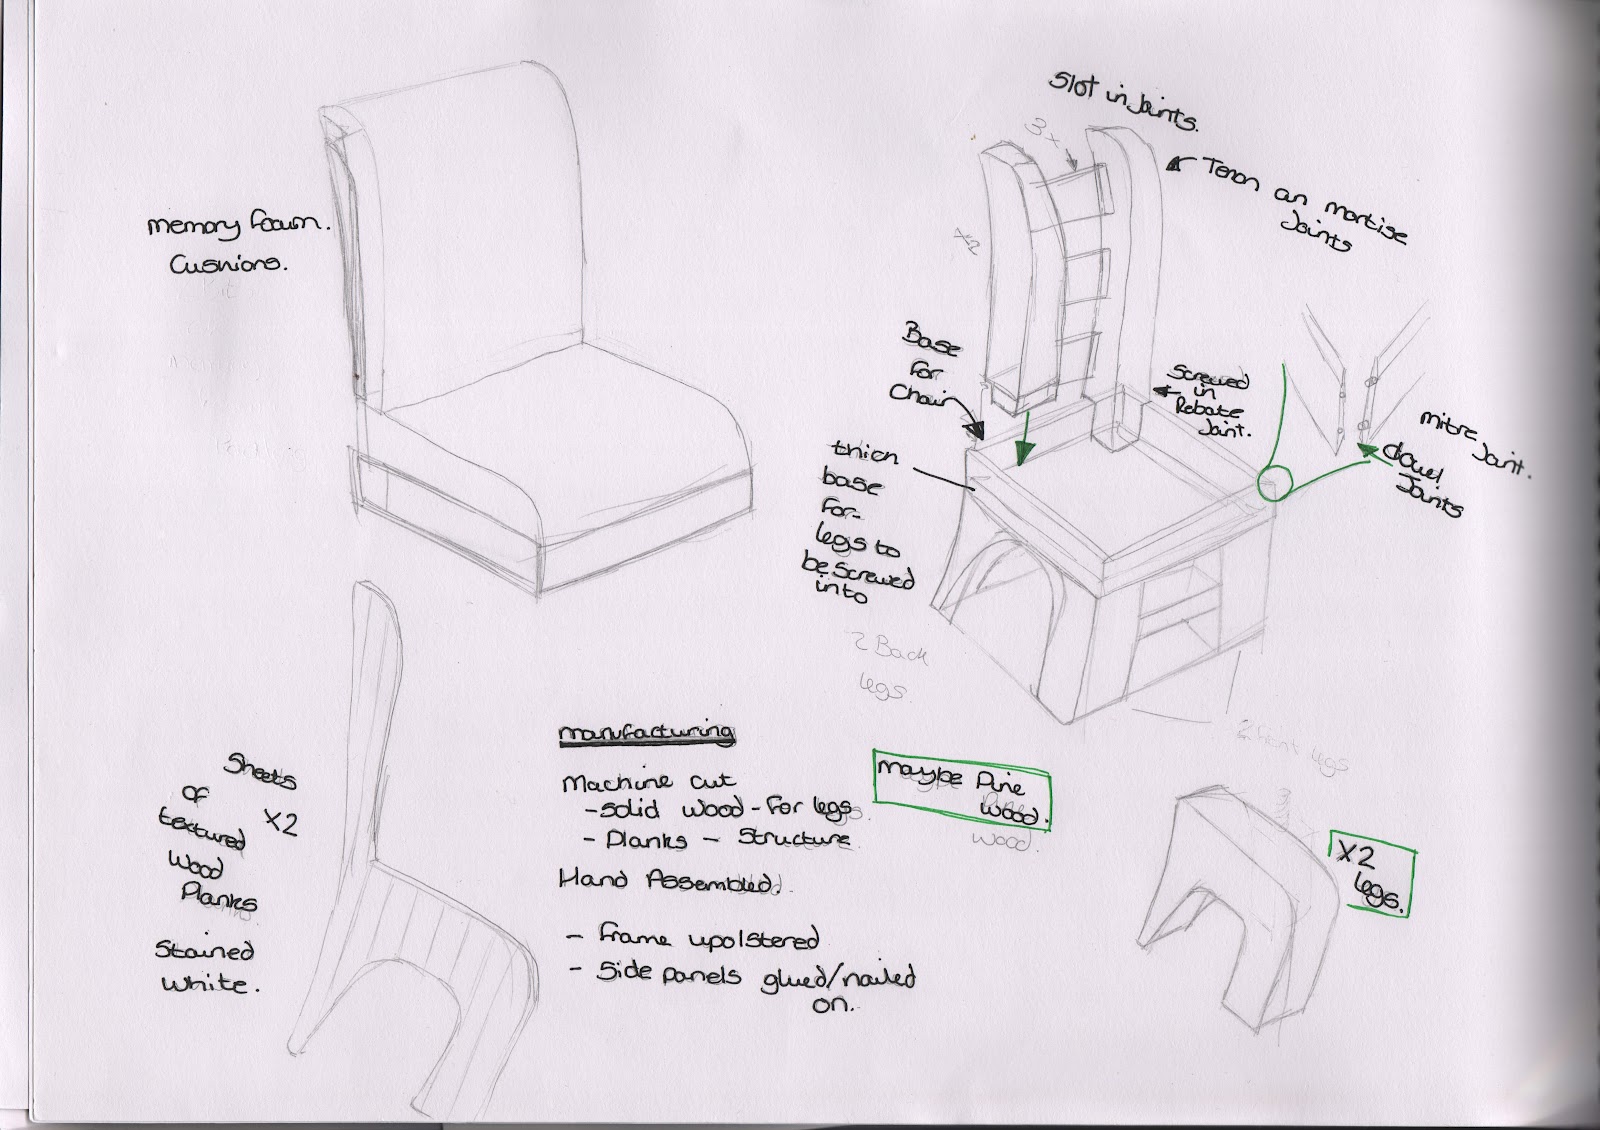 memory foam.
Cushions.
Slot in Joints.
3x
Tenon an mortise
Joints
x2
Base
for
Chair
Screwed
in
Rebate
Joint.
mitre Joint.
dowel
Joints
thick
base
for
legs to
be screwed
into
2 Back
legs
2 front legs
Sheets
of
textured
Wood
Planks
X2
Stained
White.
manufacturing
Machine cut
- Solid Wood - For legs.
- Planks - Structure
Hand Assembled.
- Frame upolstered
- Side panels glued/nailed
on.
maybe Pine
Wood.
wood.
X2
legs.